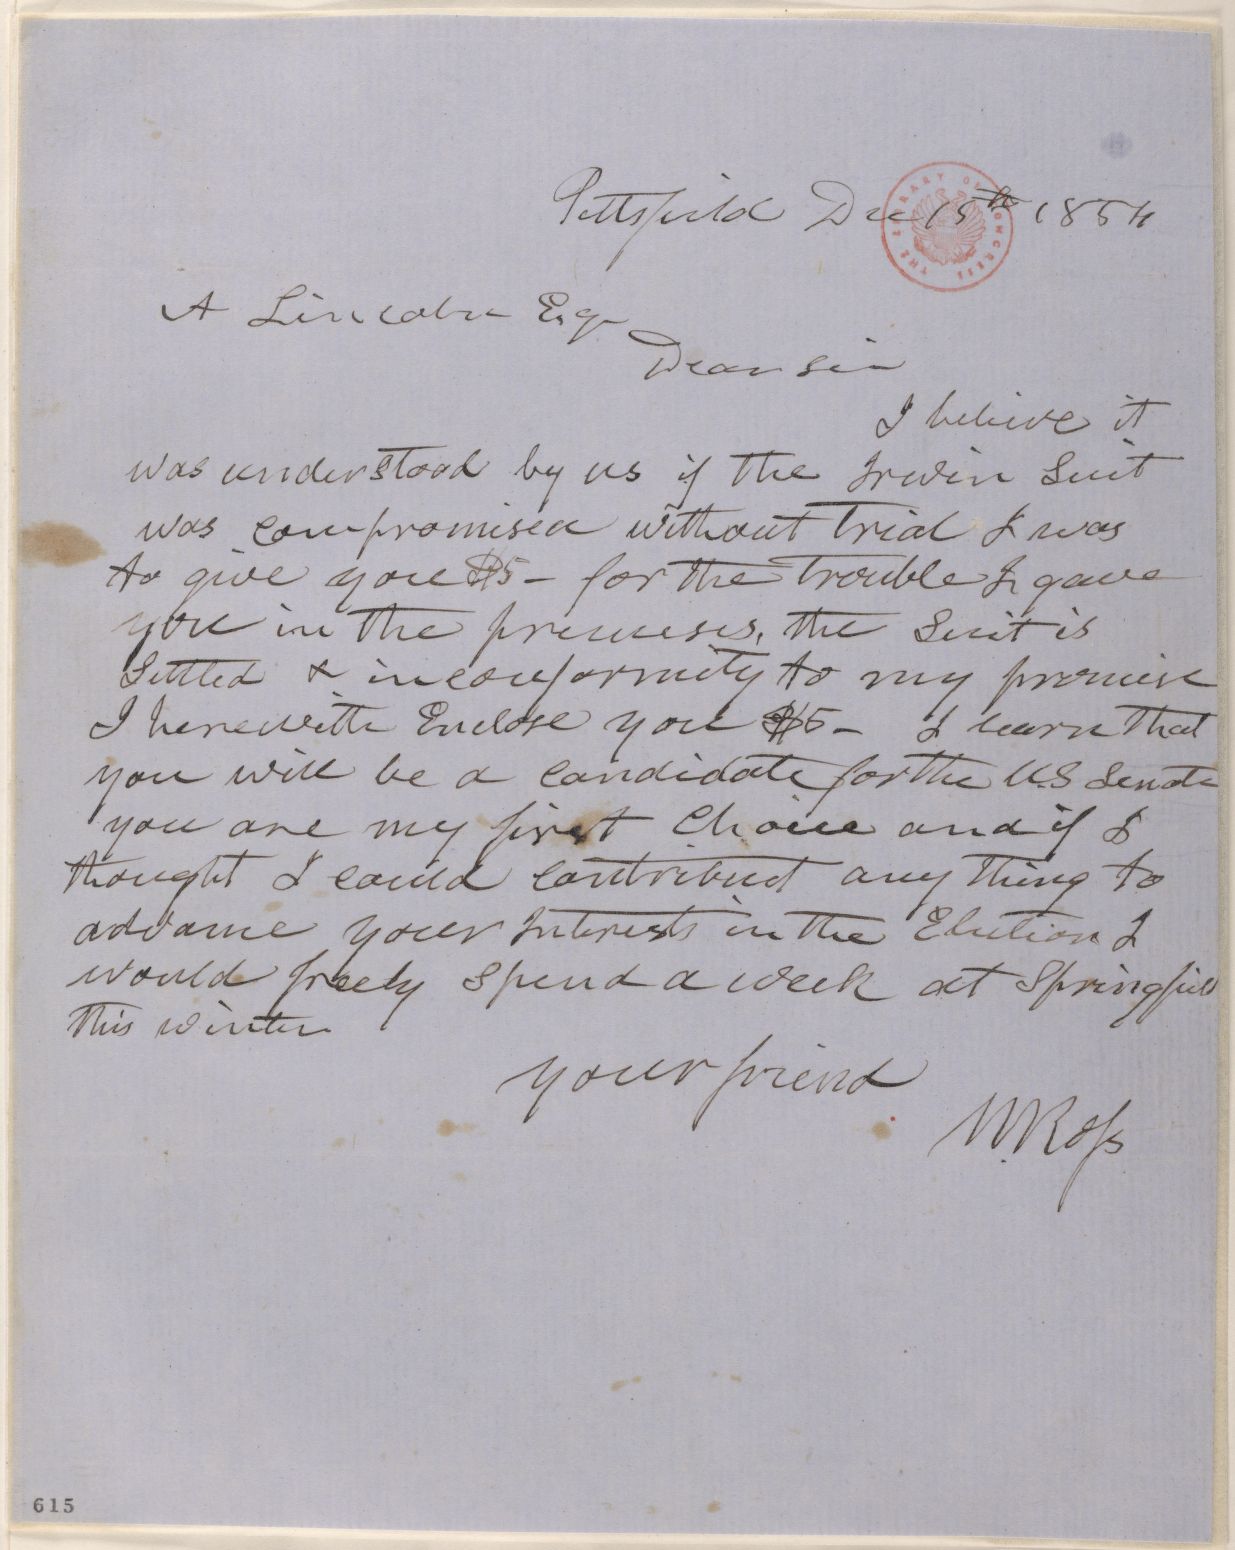 Pittsfield Dec 15th 1854
THE LIBRARY OF CONGRESS
A Lincoln Esq
Dear sir
I believe it
was understood by us if the Irwin Suit
was compromised without trial I was
to give you $5– for the trouble I gave
you in the premises. the Suit is
Settled & in conformity to my promise
I herewith Enclose you $5– I learn that
you will be a candidate for the U.S Senate
you are my first Choice and if I
thought I could contribut any thing to
advance your Interests in the Election I
would freely spend a week at Springfield
this winter
your friend
W. Ross
615